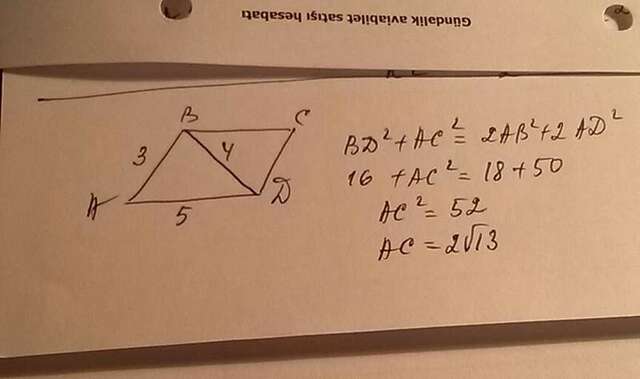 Gündəlik aviabilet satışı hesabatı
B
C
3
4
A
5
D
BD² + AC² = 2AB² + 2AD²
16 + AC² = 18 + 50
AC² = 52
AC = 2√13